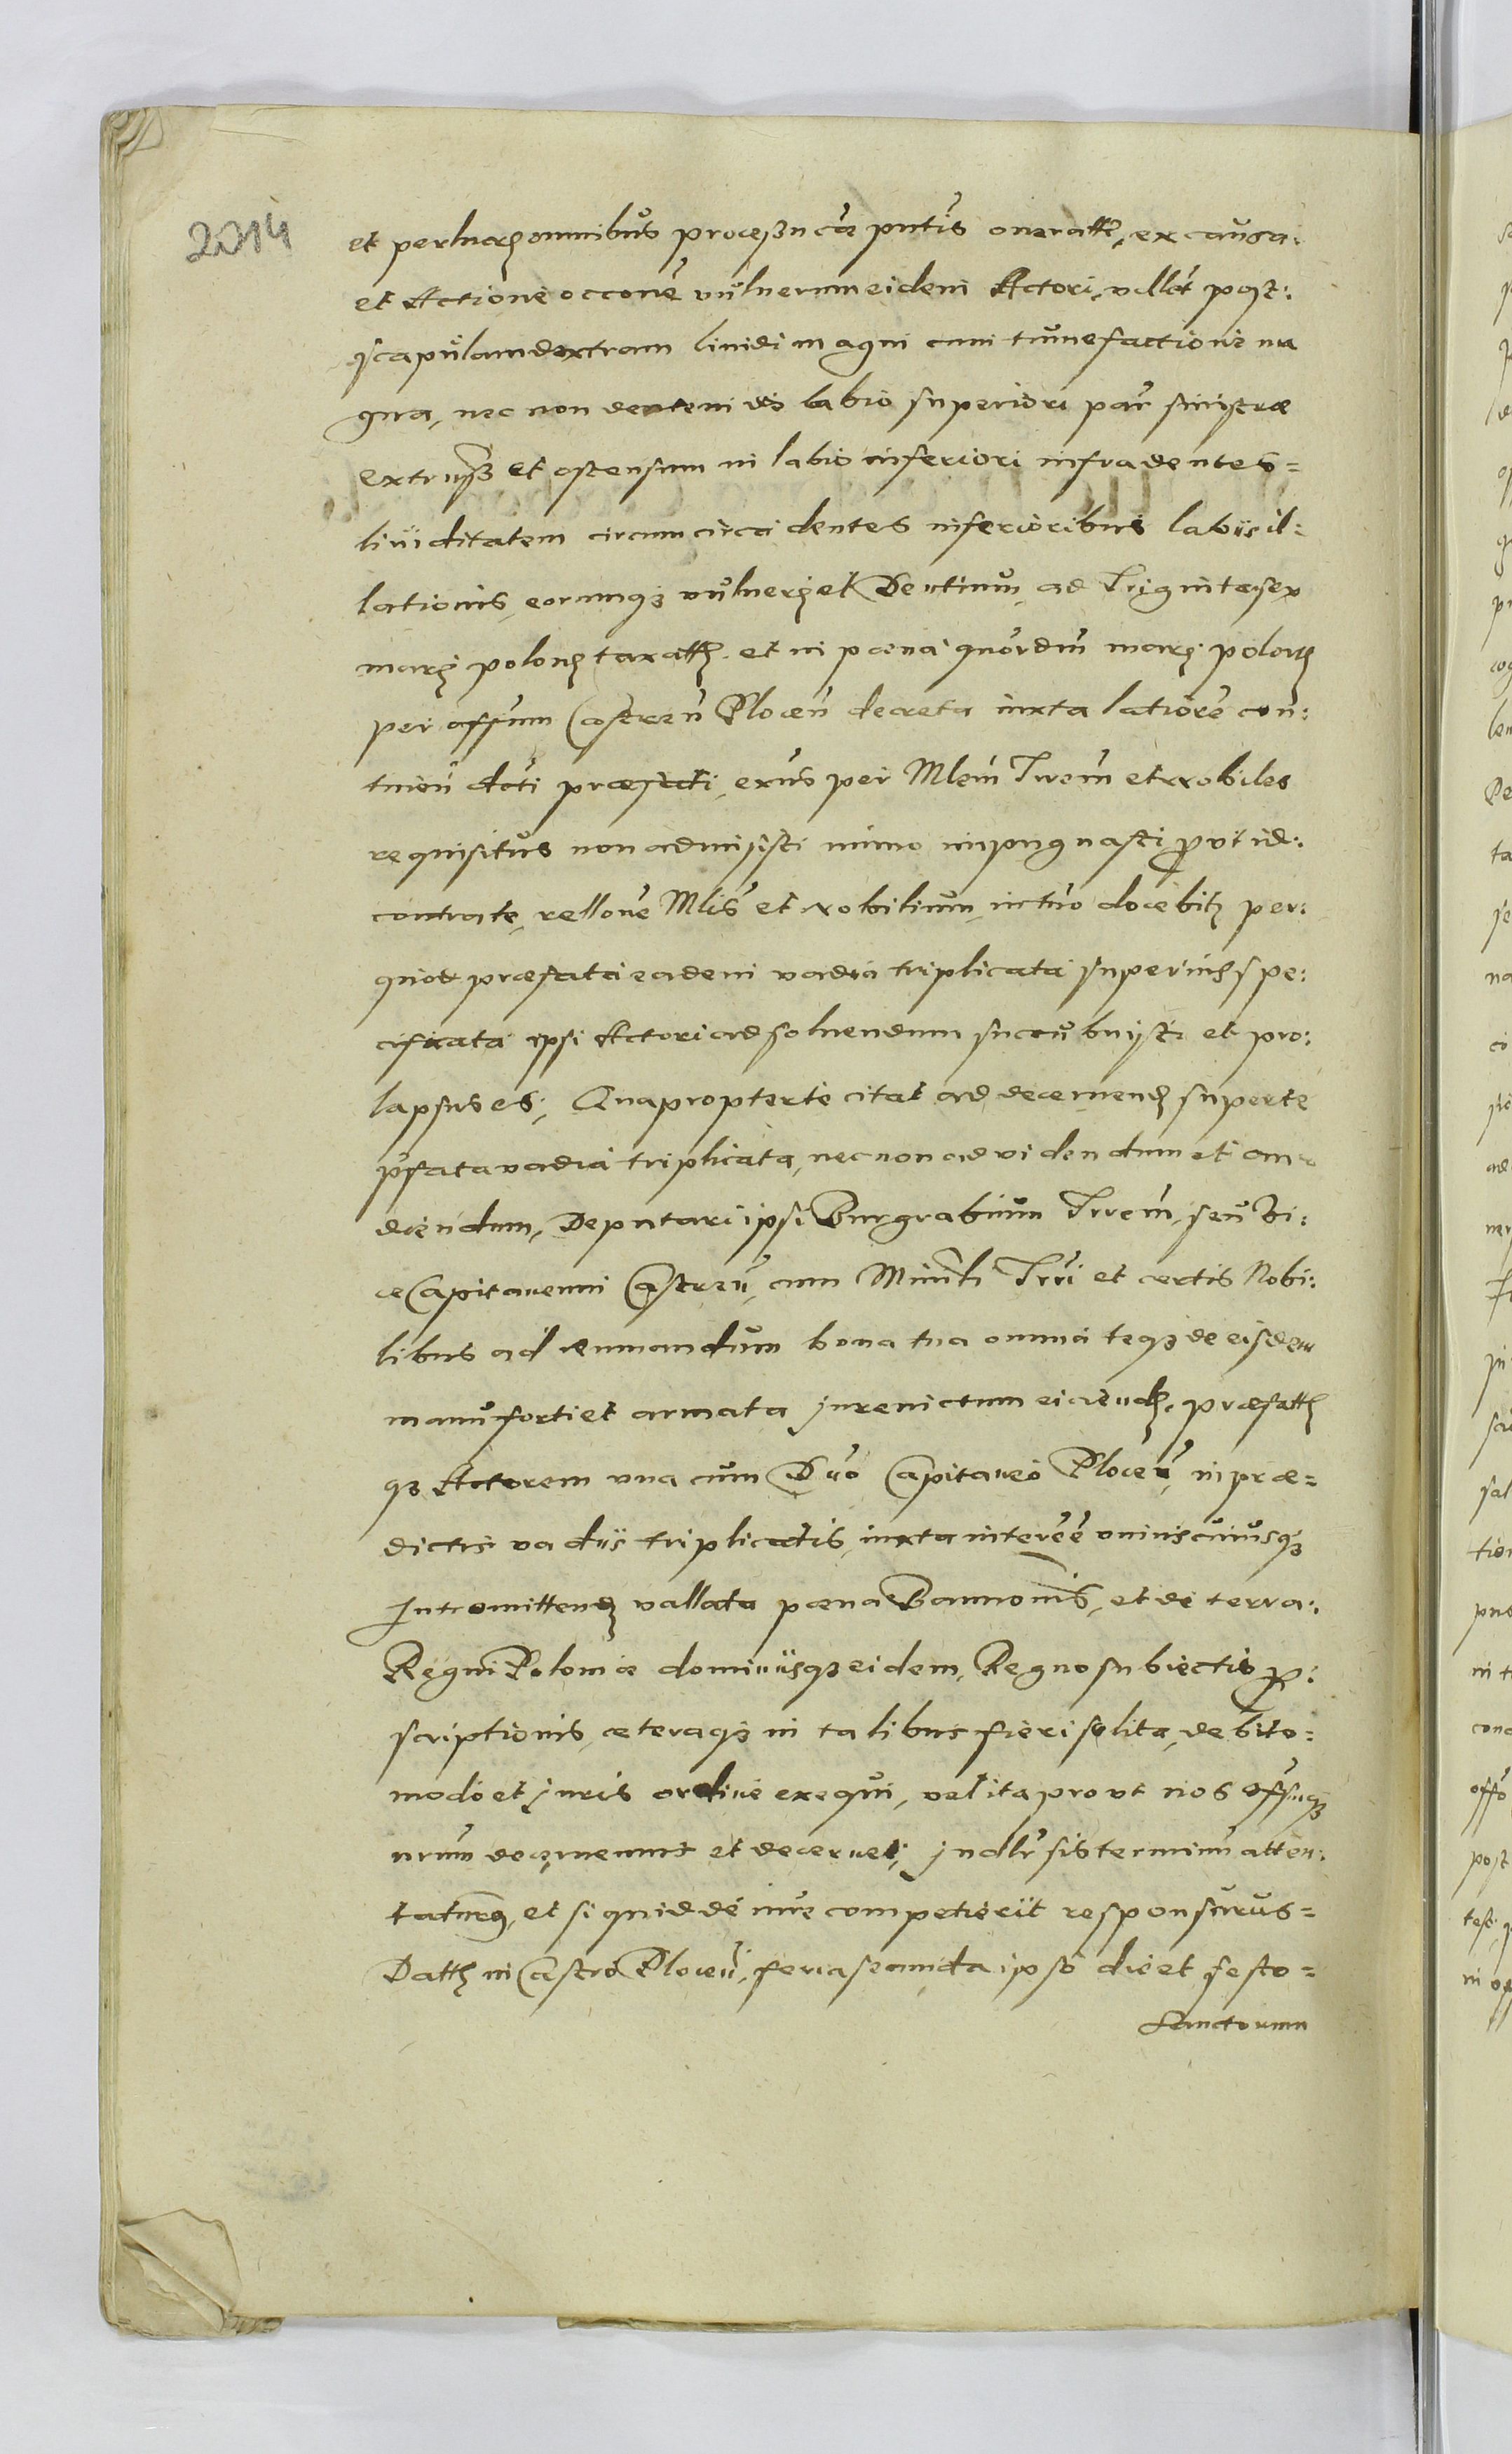 2014
et perlucrat omnibus processu cae pntis oneratte, ex causa
et Actione occone vulnerum eidem Actori, vllet post
scapulam dextram lividi magni cum tumefactione ma
gna, nec non dentem de labio superiori par sinistrae
extruss et ostensum in labio inferiori infra dentes =
liviiditatem circumcirca dentes inferioribus labiis il:
lationis, eorumq3 vulner et Dentium, ad Triginta sex
marc polon taxatt. et in paena quordm marc polon
per offium Castren Plocen decreta iuxta latiore con:
tinen doti praefati, exns per Mlem Trrem et nobiles
requisitus non admisisti immo impugnasti prout id:
contra te, rellone Mlis et nobilium, in tno docebit per:
quod praefata eadem vadia triplicata superius spe:
cificata ipsi Actori ad soluendum succubuisti et pro:
lapsus es; Quapropter te citat ad decernend super te
pfata vadia triplicata, nec non ad videndum et au
diendum, Deputari ipsi Burgrabium Trrem, seu Vi:
ce Capitaneum Castren, cum Minrli Trri et certis Nobi:
libus ad venundum bona tua omnia teq3 de eisdem
manu forti et armata jure victum eiciend. praefatt
q3 Actorem vna cum Dno Capitaneo Plocen, in prae=
dictis vadiis triplicatis, iuxta interee vniuscuiusq3
Intromittend vallata paena Bannonis, et de terra
Regni Poloniae dominiisq3 eidem, Regno subiectis pro:
scriptionis, caeteraq3 in talibus fieri solita, debito:
modo et juris ordine exequi, vel ita prout nos offiuq3
nrum decernemus et decernet; judlr sis terminu atten:
taturq, et si quid de iure competierit responsurus =
Datt in Castro Plocen, feria secunda ipso die et festo =
Sanctorum